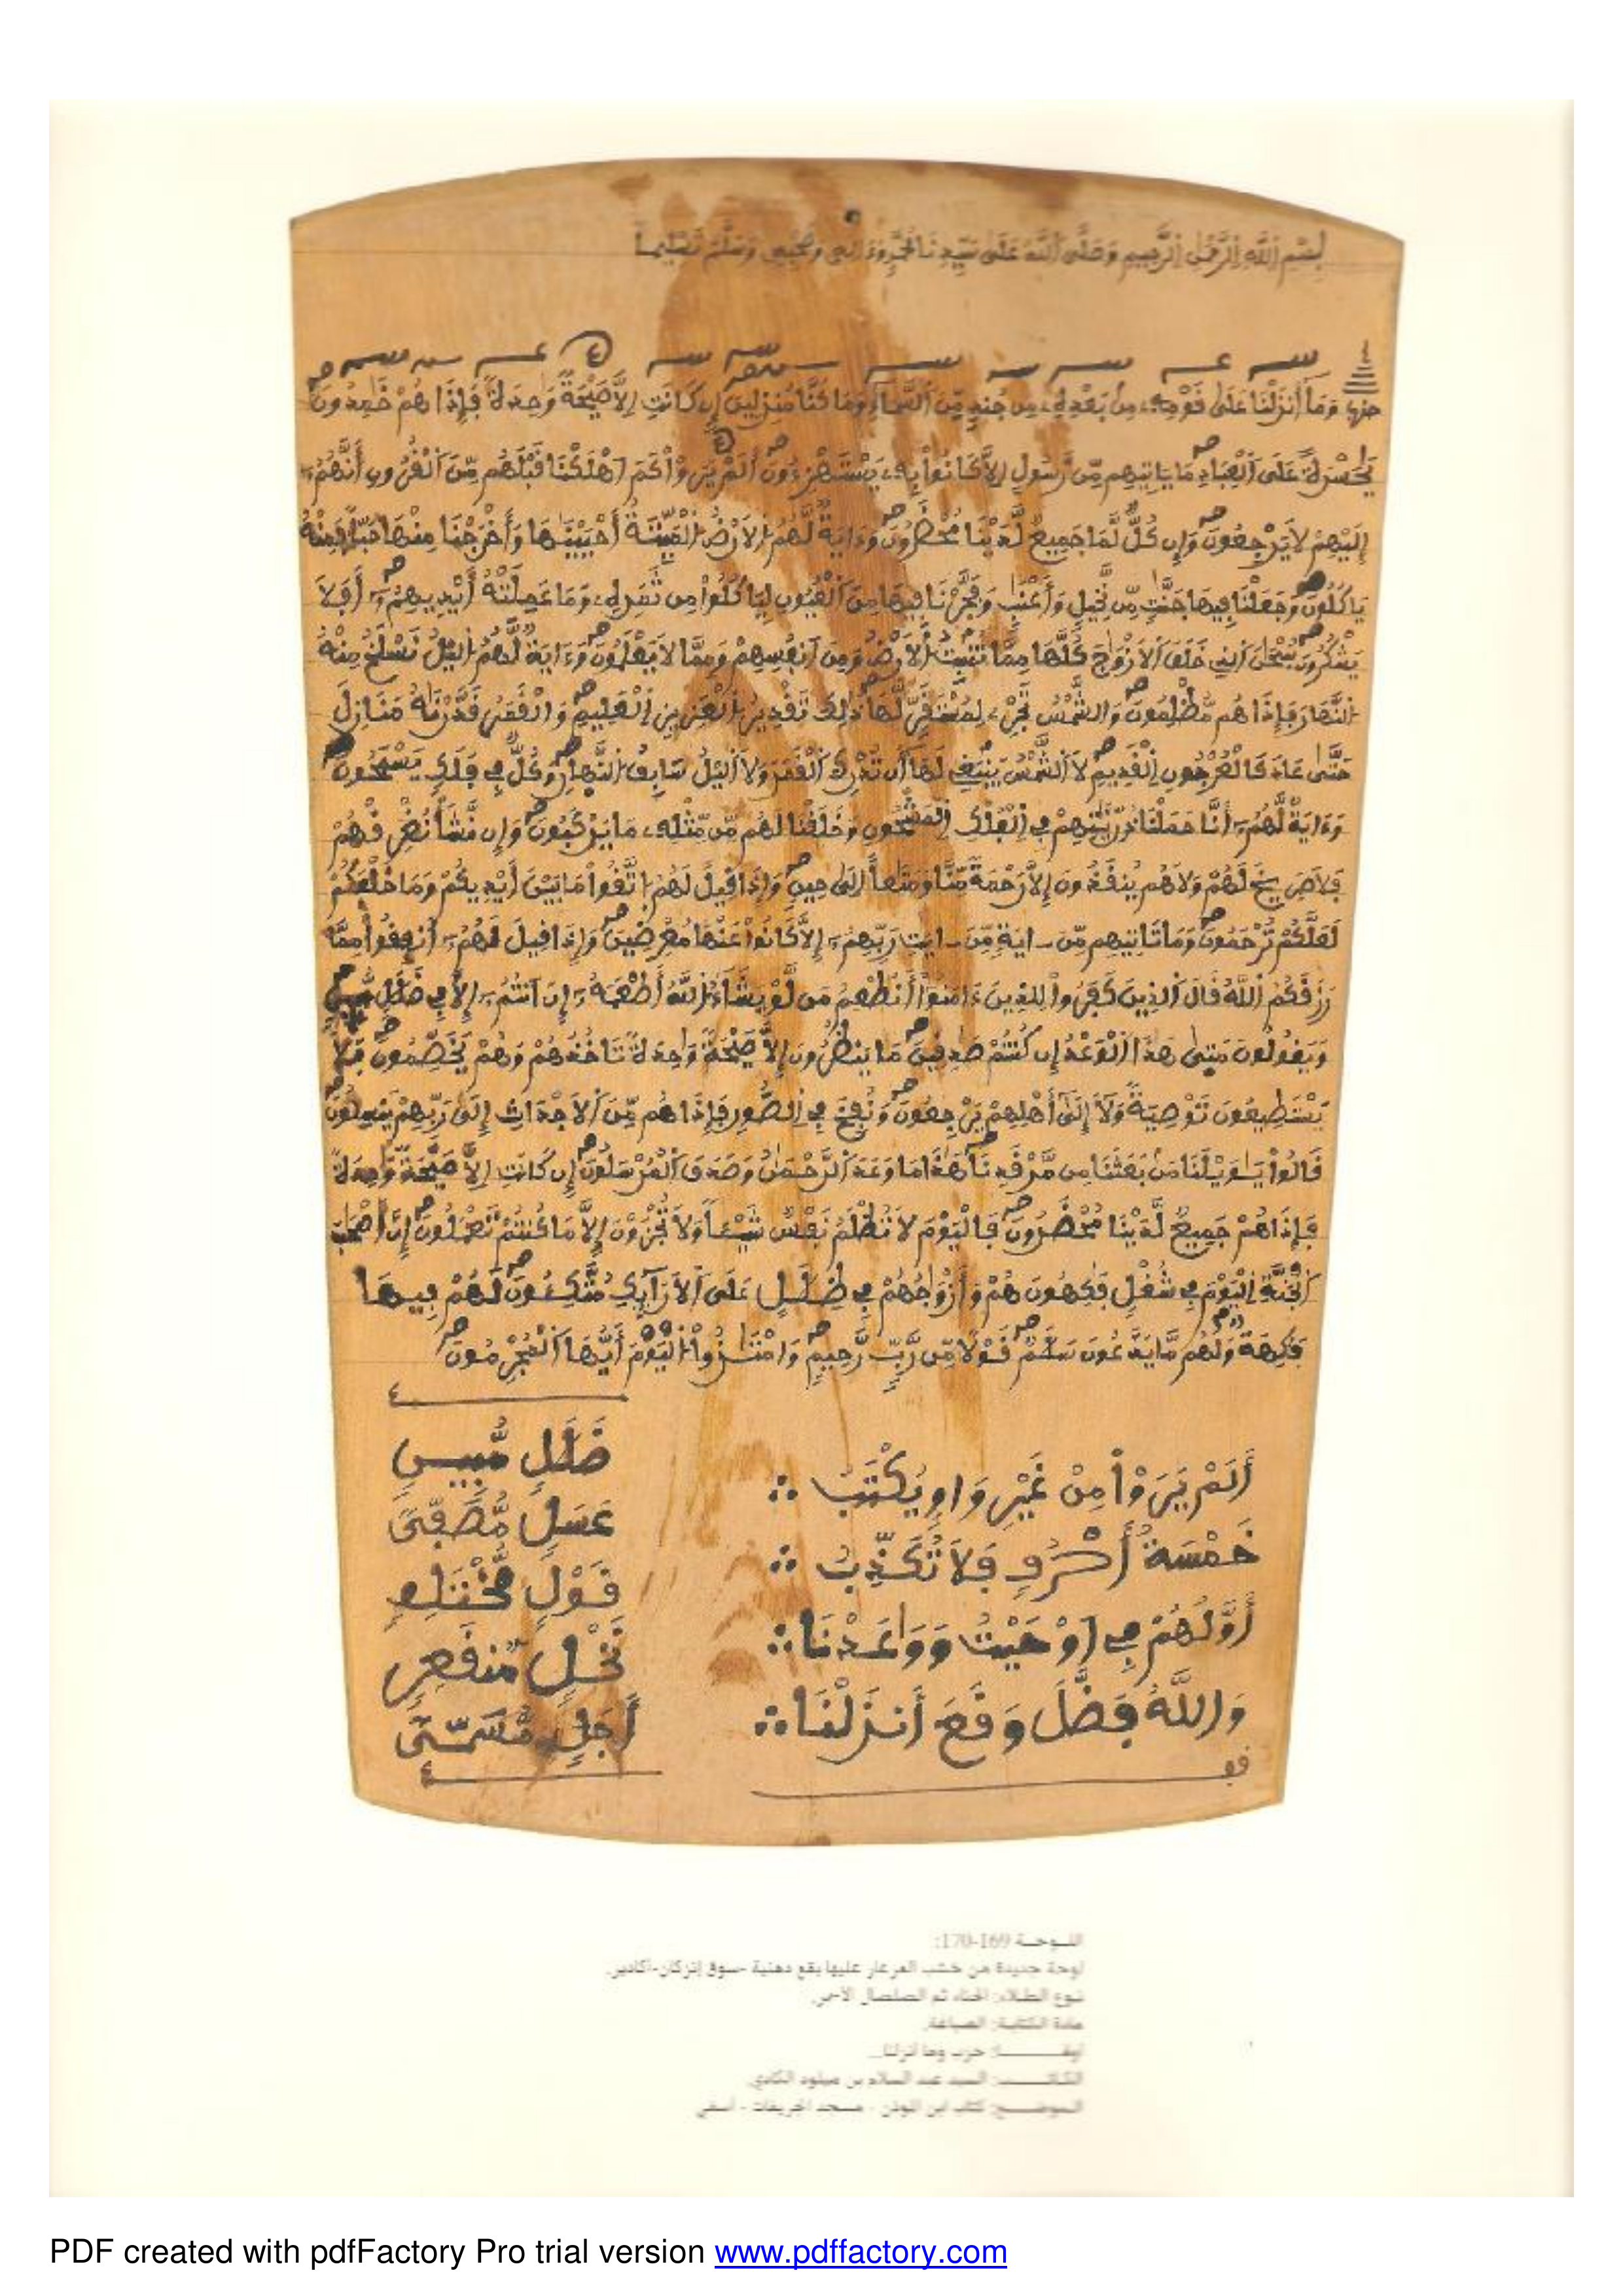 بِسْمِ اللَّهِ الرَّحْمَٰنِ الرَّحِيمِ وَصَلَّى اللَّهُ عَلَى سَيِّدِنَا مُحَمَّدٍ وَءَالِهِ وَصَحْبِهِ وَسَلَّمَ تَسْلِيماً
حزب وَمَا أَنزَلْنَا عَلَىٰ قَوْمِهِ مِن بَعْدِهِ مِن جُندٍ مِّنَ السَّمَاءِ وَمَا كُنَّا مُنزِلِينَ إِن كَانَتِ اِلَّا صَيْحَةً وَٰحِدَةً فَإِذَا هُمْ خَٰمِدُونَ
يَٰحَسْرَةً عَلَى الْعِبَادِ مَا يَاتِيهِم مِّن رَّسُولٍ اِلَّا كَانُواْ بِهِ يَسْتَهْزِءُونَ أَلَمْ يَرَوْاْ كَمَ اَهْلَكْنَا قَبْلَهُم مِّنَ الْقُرُونِ أَنَّهُمُ
إِلَيْهِمْ لَا يَرْجِعُونَ وَإِن كُلٌّ لَّمَا جَمِيعٌ لَّدَيْنَا مُحْضَرُونَ وَءَايَةٌ لَّهُمُ الْاَرْضُ الْمَيِّتَةُ أَحْيَيْنَٰهَا وَأَخْرَجْنَا مِنْهَا حَبّاً فَمِنْهُ
يَاكُلُونَ وَجَعَلْنَا فِيهَا جَنَّٰتٍ مِّن نَّخِيلٍ وَأَعْنَٰبٍ وَفَجَّرْنَا فِيهَا مِنَ الْعُيُونِ لِيَاكُلُواْ مِن ثَمَرِهِ وَمَا عَمِلَتْهُ أَيْدِيهِمُ أَفَلَا
يَشْكُرُونَ سُبْحَٰنَ الذِي خَلَقَ الْاَزْوَٰجَ كُلَّهَا مِمَّا تُنبِتُ الْاَرْضُ وَمِنَ اَنفُسِهِمْ وَمِمَّا لَا يَعْلَمُونَ وَءَايَةٌ لَّهُمُ الَيْلُ نَسْلَخُ مِنْهُ
النَّهَارَ فَإِذَا هُم مُّظْلِمُونَ وَالشَّمْسُ تَجْرِي لِمُسْتَقَرٍّ لَّهَا ذَٰلِكَ تَقْدِيرُ الْعَزِيزِ الْعَلِيمِ وَالْقَمَرُ قَدَّرْنَٰهُ مَنَازِلَ
حَتَّىٰ عَادَ كَالْعُرْجُونِ الْقَدِيمِ لَا الشَّمْسُ يَنبَغِي لَهَا أَن تُدْرِكَ الْقَمَرَ وَلَا الَيْلُ سَابِقُ النَّهَارِ وَكُلٌّ فِي فَلَكٍ يَسْبَحُونَ
وَءَايَةٌ لَّهُمُ أَنَّا حَمَلْنَا ذُرِّيَّٰتِهِمْ فِي الْفُلْكِ الْمَشْحُونِ وَخَلَقْنَا لَهُم مِّن مِّثْلِهِ مَا يَرْكَبُونَ وَإِن نَّشَأْ نُغْرِقْهُمْ
فَلَا صَرِيخَ لَهُمْ وَلَا هُمْ يُنقَذُونَ إِلَّا رَحْمَةً مِّنَّا وَمَتَٰعاً اِلَىٰ حِينٍ وَإِذَا قِيلَ لَهُمُ اتَّقُواْ مَا بَيْنَ أَيْدِيكُمْ وَمَا خَلْفَكُمْ
لَعَلَّكُمْ تُرْحَمُونَ وَمَا تَاتِيهِم مِّنَ ايَةٍ مِّنَ ايَٰتِ رَبِّهِمُ إِلَّا كَانُواْ عَنْهَا مُعْرِضِينَ وَإِذَا قِيلَ لَهُمُ أَنفِقُواْ مِمَّا
رَزَقَكُمُ اللَّهُ قَالَ الذِينَ كَفَرُواْ لِلذِينَ ءَامَنُواْ أَنُطْعِمُ مَن لَّوْ يَشَاءُ اللَّهُ أَطْعَمَهُ إِنَ اَنتُمُ إِلَّا فِي ضَلَٰلٍ مُّبِينٍ
وَيَقُولُونَ مَتَىٰ هَٰذَا الْوَعْدُ إِن كُنتُمْ صَٰدِقِينَ مَا يَنظُرُونَ إِلَّا صَيْحَةً وَٰحِدَةً تَاخُذُهُمْ وَهُمْ يَخَصِّمُونَ فَلَا
يَسْتَطِيعُونَ تَوْصِيَةً وَلَا إِلَىٰ أَهْلِهِمْ يَرْجِعُونَ وَنُفِخَ فِي الصُّورِ فَإِذَا هُم مِّنَ الْاَجْدَاثِ إِلَىٰ رَبِّهِمْ يَنسِلُونَ
قَالُواْ يَٰوَيْلَنَا مَن بَعَثَنَا مِن مَّرْقَدِنَا هَٰذَا مَا وَعَدَ الرَّحْمَٰنُ وَصَدَقَ الْمُرْسَلُونَ إِن كَانَتِ اِلَّا صَيْحَةً وَٰحِدَةً
فَإِذَا هُمْ جَمِيعٌ لَّدَيْنَا مُحْضَرُونَ فَالْيَوْمَ لَا تُظْلَمُ نَفْسٌ شَيْـٔاً وَلَا تُجْزَوْنَ إِلَّا مَا كُنتُمْ تَعْمَلُونَ إِنَّ أَصْحَٰبَ
الْجَنَّةِ الْيَوْمَ فِي شُغْلٍ فَٰكِهُونَ هُمْ وَأَزْوَٰجُهُمْ فِي ظِلَٰلٍ عَلَى الْاَرَآئِكِ مُتَّكِـُٔونَ لَهُمْ فِيهَا
فَٰكِهَةٌ وَلَهُم مَّا يَدَّعُونَ سَلَٰمٌ قَوْلًا مِّن رَّبٍّ رَّحِيمٍ وَامْتَٰزُواْ الْيَوْمَ أَيُّهَا الْمُجْرِمُونَ
أَلَمْ يَرَوْاْ مِنْ غَيْرِ وَاوٍ يُكْتَبُ
خَمْسَةُ أَحْرُفٍ فَلَا تُكَذِّبُ
أَوَّلُهُمْ فِي أَوْحَيْتُ وَوَاعَدْنَا
وَاللَّهُ فَضَّلَ وَقَعَ أَنزَلْنَا
ضَلَٰلٍ مُّبِينٍ
عَسَلٍ مُّصَفًّى
قَوْلٍ مُّخْتَلِفٍ
نَخْلٍ مُّنقَعِرٍ
أَجَلٍ مُّسَمًّى
اللوحة 169-170:
لوحة جديدة من خشب العرعار عليها بقع دهنية -سوق إنزكان-أكادير.
نوع الطلاء: الحناء ثم الصلصال الأحمر.
مادة الكتابة: الصباغة.
حزب وما أنزلنا...
الكاتب: السيد عبد السلام بن ميلود الكادي.
الموضع: كتاب ابن المودن - مسجد الجريفات - آسفي
PDF created with pdfFactory Pro trial version www.pdffactory.com